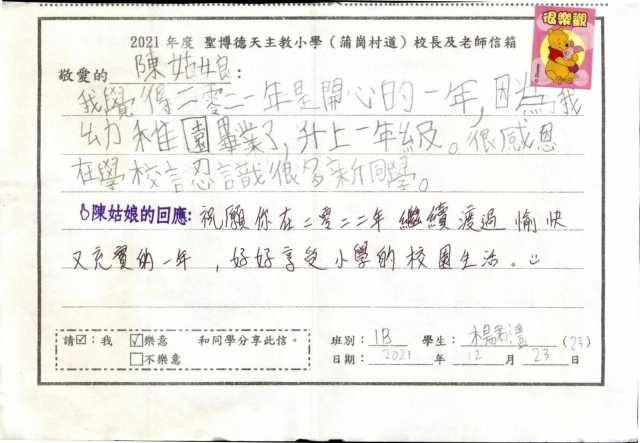 很樂觀
2021 年度 聖博德天主教小學（蒲崗村道）校長及老師信箱
敬愛的 陳姑娘：
我覺得二零二一年是開心的一年，因為我
幼稚園畢業了，升上一年級。很感恩
在學校認識很多新同學。
陳姑娘的回應: 祝願你在二零二二年繼續渡過愉快
又充實的一年，好好享受小學的校園生活。
請☑：我 ☑樂意 和同學分享此信。
□不樂意
班別：1B 學生：楊 (23)
日期：2021 年 12 月 23 日